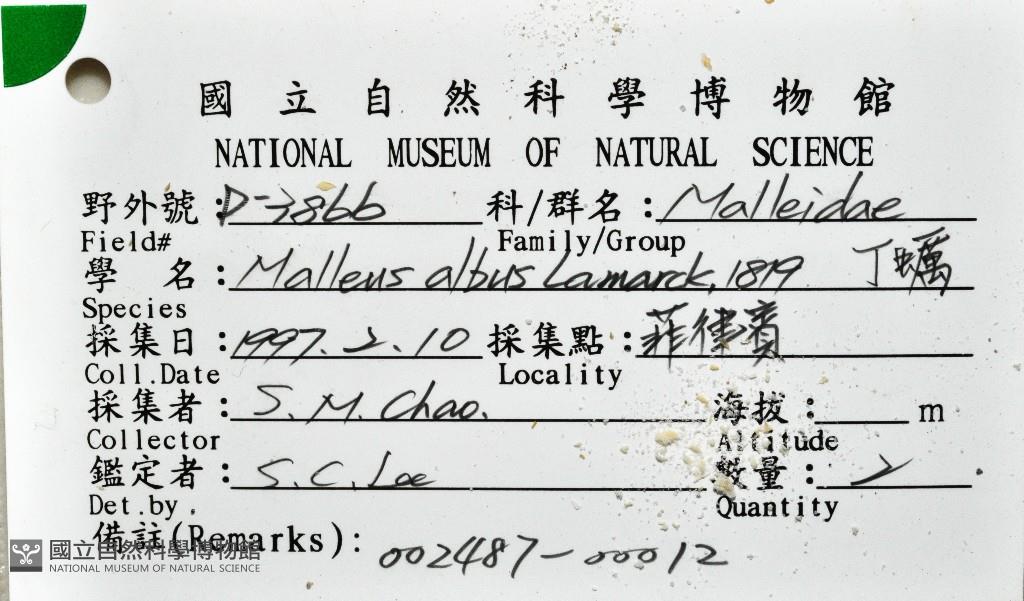 國立自然科學博物館
NATIONAL MUSEUM OF NATURAL SCIENCE
野外號：D-3866 科/群名：Malleidae
Field# Family/Group
學 名：Malleus albus Lamarck, 1819 丁蠣
Species
採集日：1997.2.10 採集點：菲律賓
Coll.Date Locality
採集者：S. M. Chao. 海拔： m
Collector Altitude
鑑定者：S.C. Lee 數量：2
Det.by. Quantity
備註(Remarks)： 002487-00012
國立自然科學博物館
NATIONAL MUSEUM OF NATURAL SCIENCE